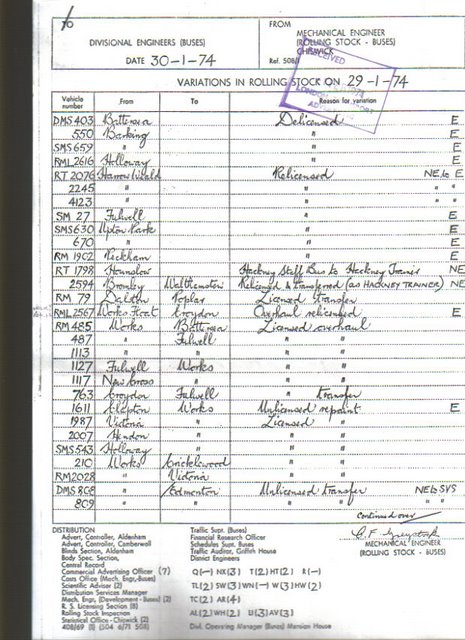 To
DIVISIONAL ENGINEERS (BUSES)
DATE 30-1-74
FROM
MECHANICAL ENGINEER
(ROLLING STOCK - BUSES)
CHISWICK
Ref. 508/
RECEIVED
VARIATIONS IN ROLLING STOCK ON 29-1-74
Vehicle number From To Reason for variation
DMS 403 Battersea Delicensed E
550 Barking " E
SMS 659 " " E
RML 2616 Holloway " E
RT 2076 Harrow Weald Relicensed NE to E
2245 " " "
4123 " " "
SM 27 Fulwell " E
SMS 630 Upton Park " E
670 " " E
RM 1902 Peckham " E
RT 1798 Hounslow Hackney Staff Bus to Hackney Trainer NE
2594 Bromley Walthamstow Relicensed & transferred (as HACKNEY TRAINER) NE
RM 79 Dalston Poplar Licensed transfer
RML 2567 Works Float Croydon Overhaul relicensed E
RM 485 Works Battersea Licensed overhaul
487 " Fulwell " "
1113 " " " "
1127 Fulwell Works " "
1117 New Cross " " "
763 Croydon Fulwell " transfer
1611 Clapton Works Unlicensed repaint E
1987 Victoria " Licensed "
2007 Hendon " " "
SMS 543 Holloway " " "
210 Works Cricklewood " "
RM 2028 " Victoria " "
DMS 808 " Edmonton Unlicensed transfer NE to SYS
809 " " " "
continued over
DISTRIBUTION
Advert, Controller, Aldenham
Advert, Controller, Camberwell
Blinds Section, Aldenham
Body Spec. Section,
Central Record
Commercial Advertising Officer (7)
Costs Office (Mech. Engr.-Buses)
Scientific Adviser (2)
Distribution Services Manager
Mech. Engr, (Development - Buses) (2)
R. S. Licensing Section (8)
Rolling Stock Inspection
Statistical Office - Chiswick (2)
Traffic Supt. (Buses)
Financial Research Officer
Schedules Supt. Buses
Traffic Auditor, Griffith House
District Engineers
Q(-) NX(3) T(2) HT(2) R(-)
TL(2) SW(3) WN(-) W(3) HW(2)
TC(2) AR(4)
AL(2) WH(2) U(3) AV(3)
Divl. Operating Manager (Buses) Mansion House
MECHANICAL ENGINEER
(ROLLING STOCK - BUSES)